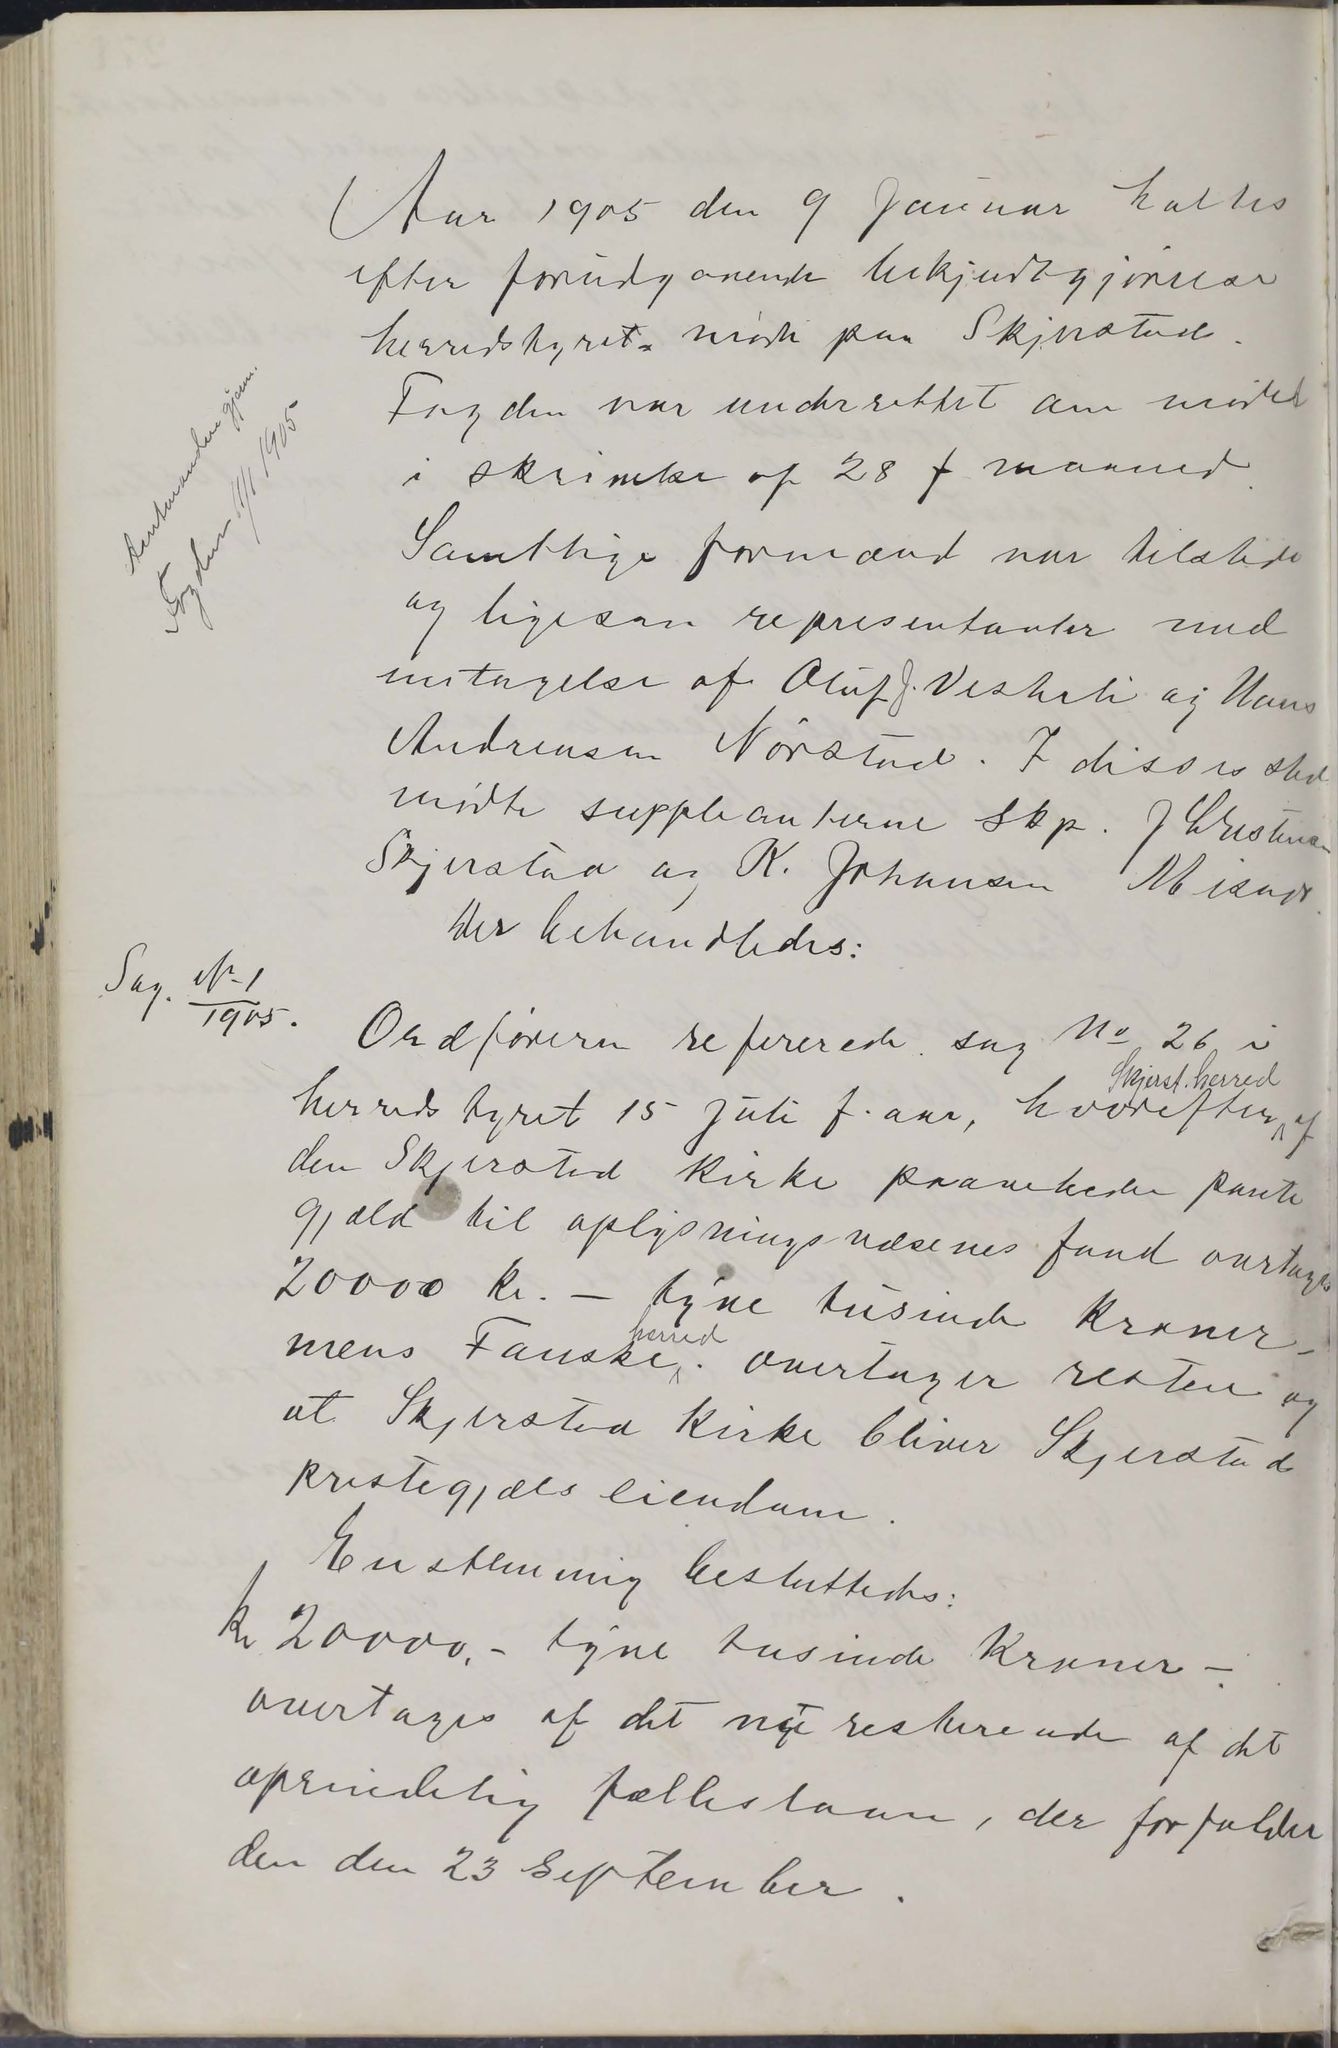 Aar 1905 den 9 Januar holtes
efter forudgaaende bekjendtgjørelse
herredstyrets møde paa Skjerstad.
Fogden var underrettet om mødet
i skrivelse af 28 f. maaned.
Amtmanden gjenn.
Fogden 11/1 1905
Samtlige formænd var tilstede
og ligesaa representanter med
undtagelse af Oluf J. Vesterli og Hans
Andreasen Nørstad. I disses sted
mødte suppleanterne skp. J Christensen
Skjerstad og K. Johansen Misvær.
Der behandledes:
Sag. No 1
1905.
Ordføreren refererede sag No 26 i
herredstyret 15 juli f. aar, hvorefter Skjerst. herred af
den Skjerstad Kirke paahvilende pante
gjæld til oplysningsvæsenes fond overtages
20000 kr. – tyve tusinde Kroner –
mens Fauske herred. overtager resten og
at Skjerstad Kirke bliver Skjerstad
prestegjælds eiendom.
Enstemmig besluttedes:
kr 20000,- tyve tusinde Kroner –
overtages af det nu resterende af det
oprindelig fælleslaan, der forfalder
den den 23 September.